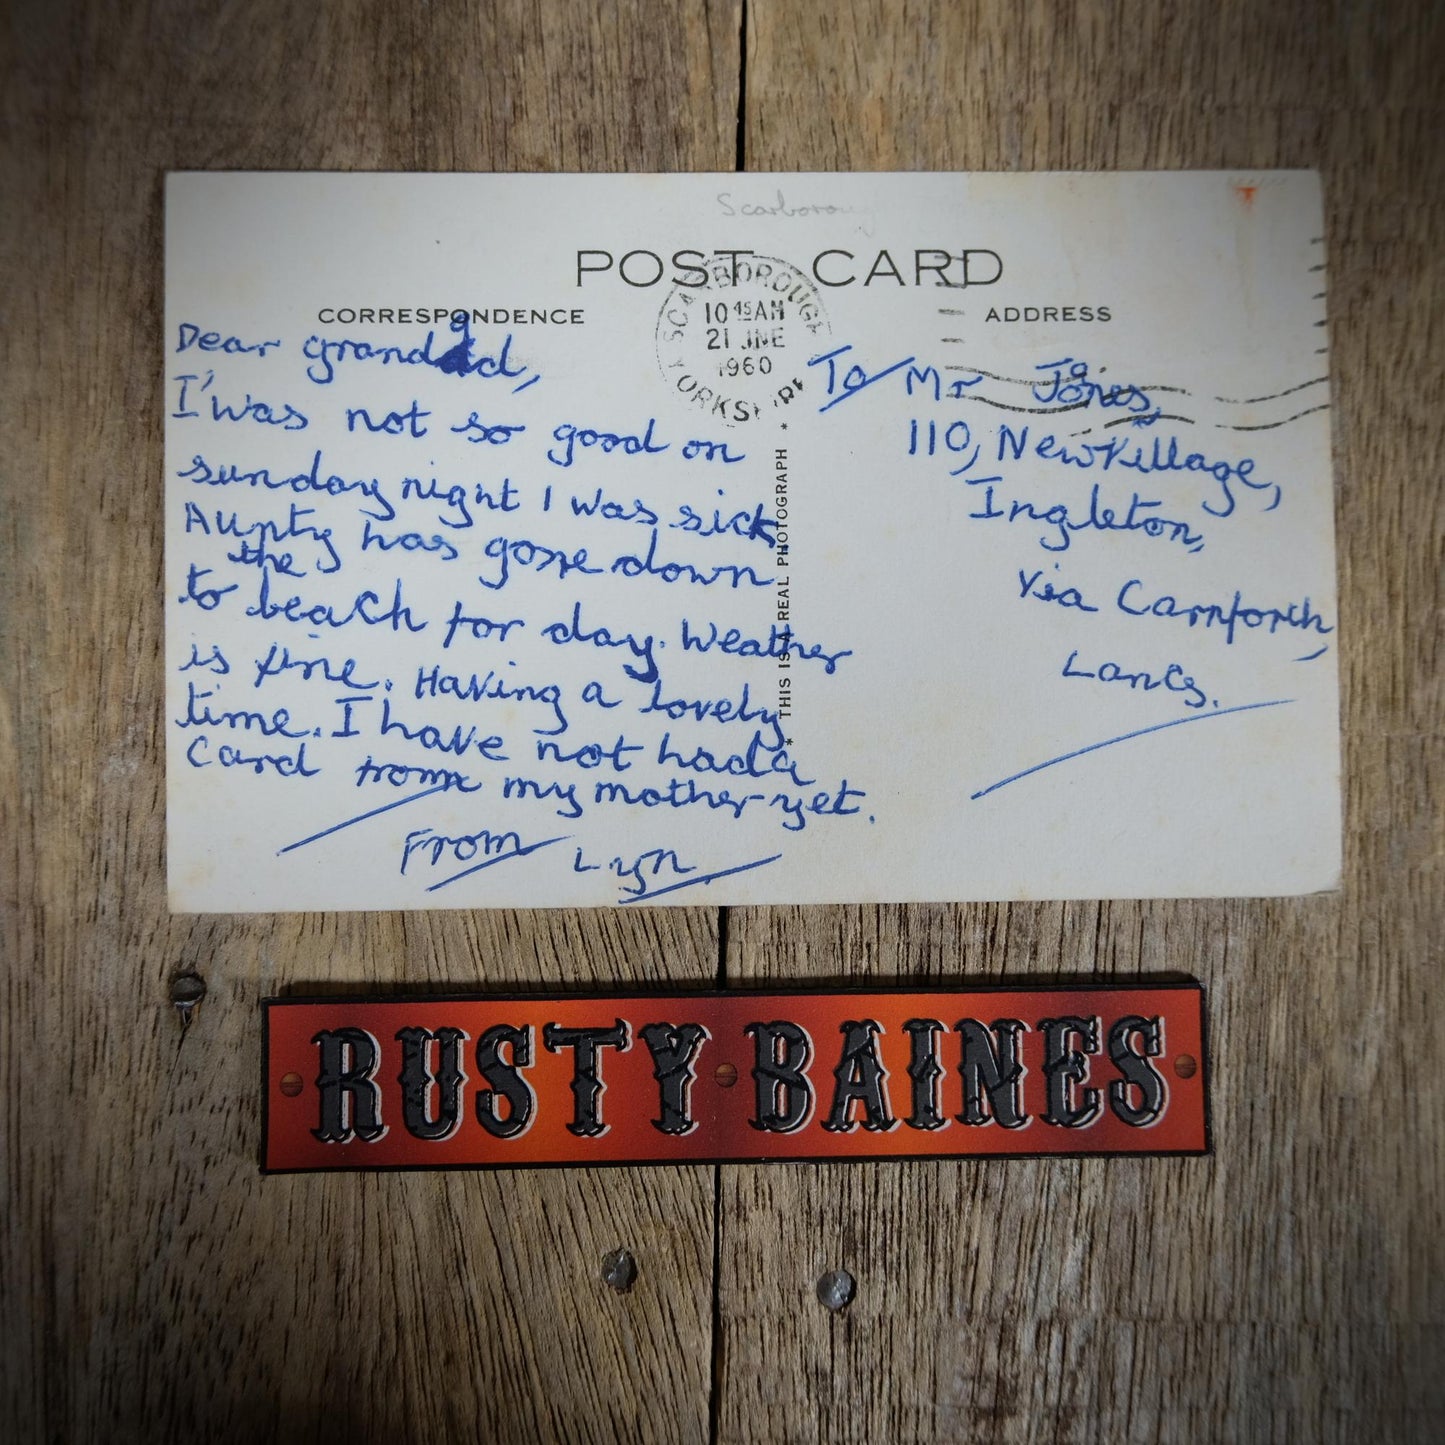 Scarborough
POST CARD
CORRESPONDENCE
ADDRESS
SCARBOROUGH
10 15 AM
21 JNE
1960
YORKSHIRE
Dear grandad,
I was not so good on
sunday night I was sick,
Aunty has gone down
to the beach for day. Weather
is fine. Having a lovely
time. I have not had a
Card from my mother yet.
From Lyn.
* THIS IS A REAL PHOTOGRAPH *
To Mr Jones,
110, New Village,
Ingleton,
Via Carnforth,
Lancs.
RUSTY BAINES